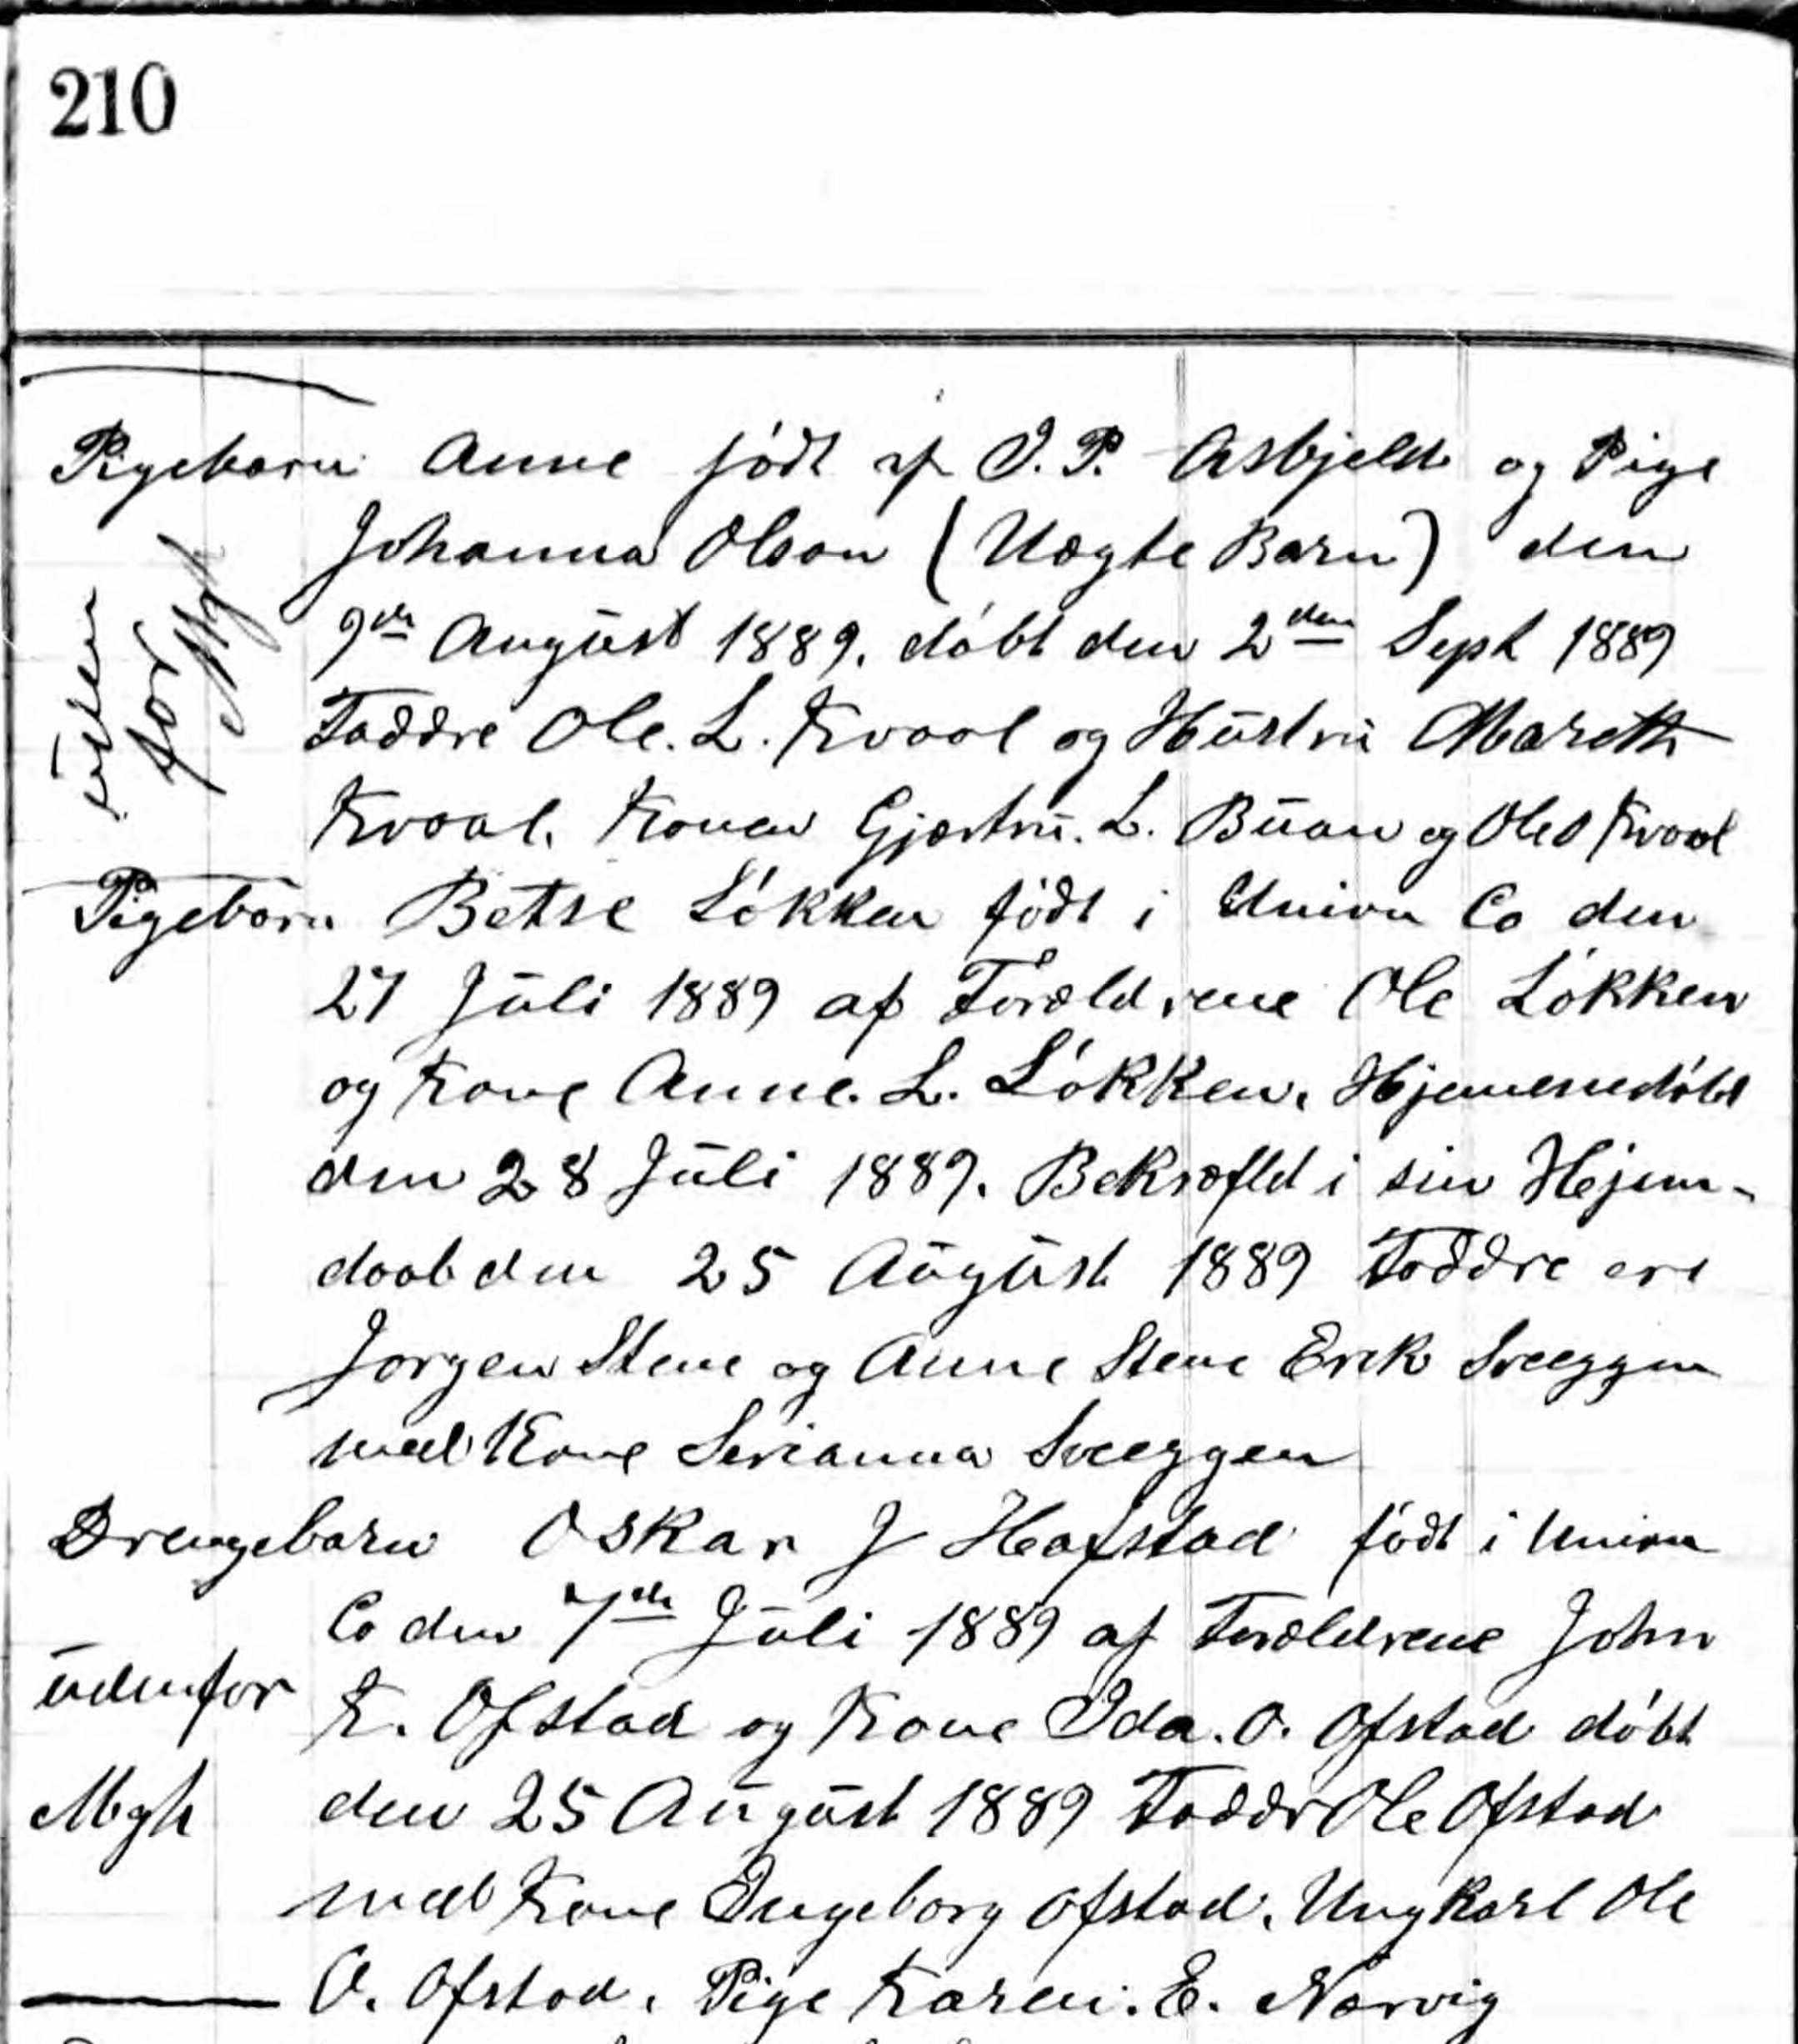 210
Pigebarn Anne født af I. P. Asbjeld og Pige
Johanna Olson (Uægte Barn) den
uden
for
Mgh
9de August 1889. døbt den 2den Sept 1889
Faddre Ole. L. Kvaal og Hustru Mareth
Kvaal. Konen Gjertru. L. Buan og Ole O Kvaal
Pigebarn Betse Løkken født i Union Co den
27 Juli 1889 af Forældrene Ole Løkken
og Kone Anne. L. Løkken. Hjemmedøbt
den 28 Juli 1889. Bekræftet i sin Hejem-
daab den 25 August 1889 Faddre ere
Jorgen Stene og Anne Stene Erek Sveeggen
med Kone Serianna Sveeggen
Drengebarn Oskar J Hafstad født i Union
Co den 7de Juli 1889 af Forældrene John
udenfor
K. Ofstad og Kone Ida. O. Ofstad døbt
Mgh
den 25 August 1889 Faddr Ole Ofstad
med Kone Ingeborg Ofstad. Ungkarl Ole
O. Ofstad. Pige Karen. E. Nærvig